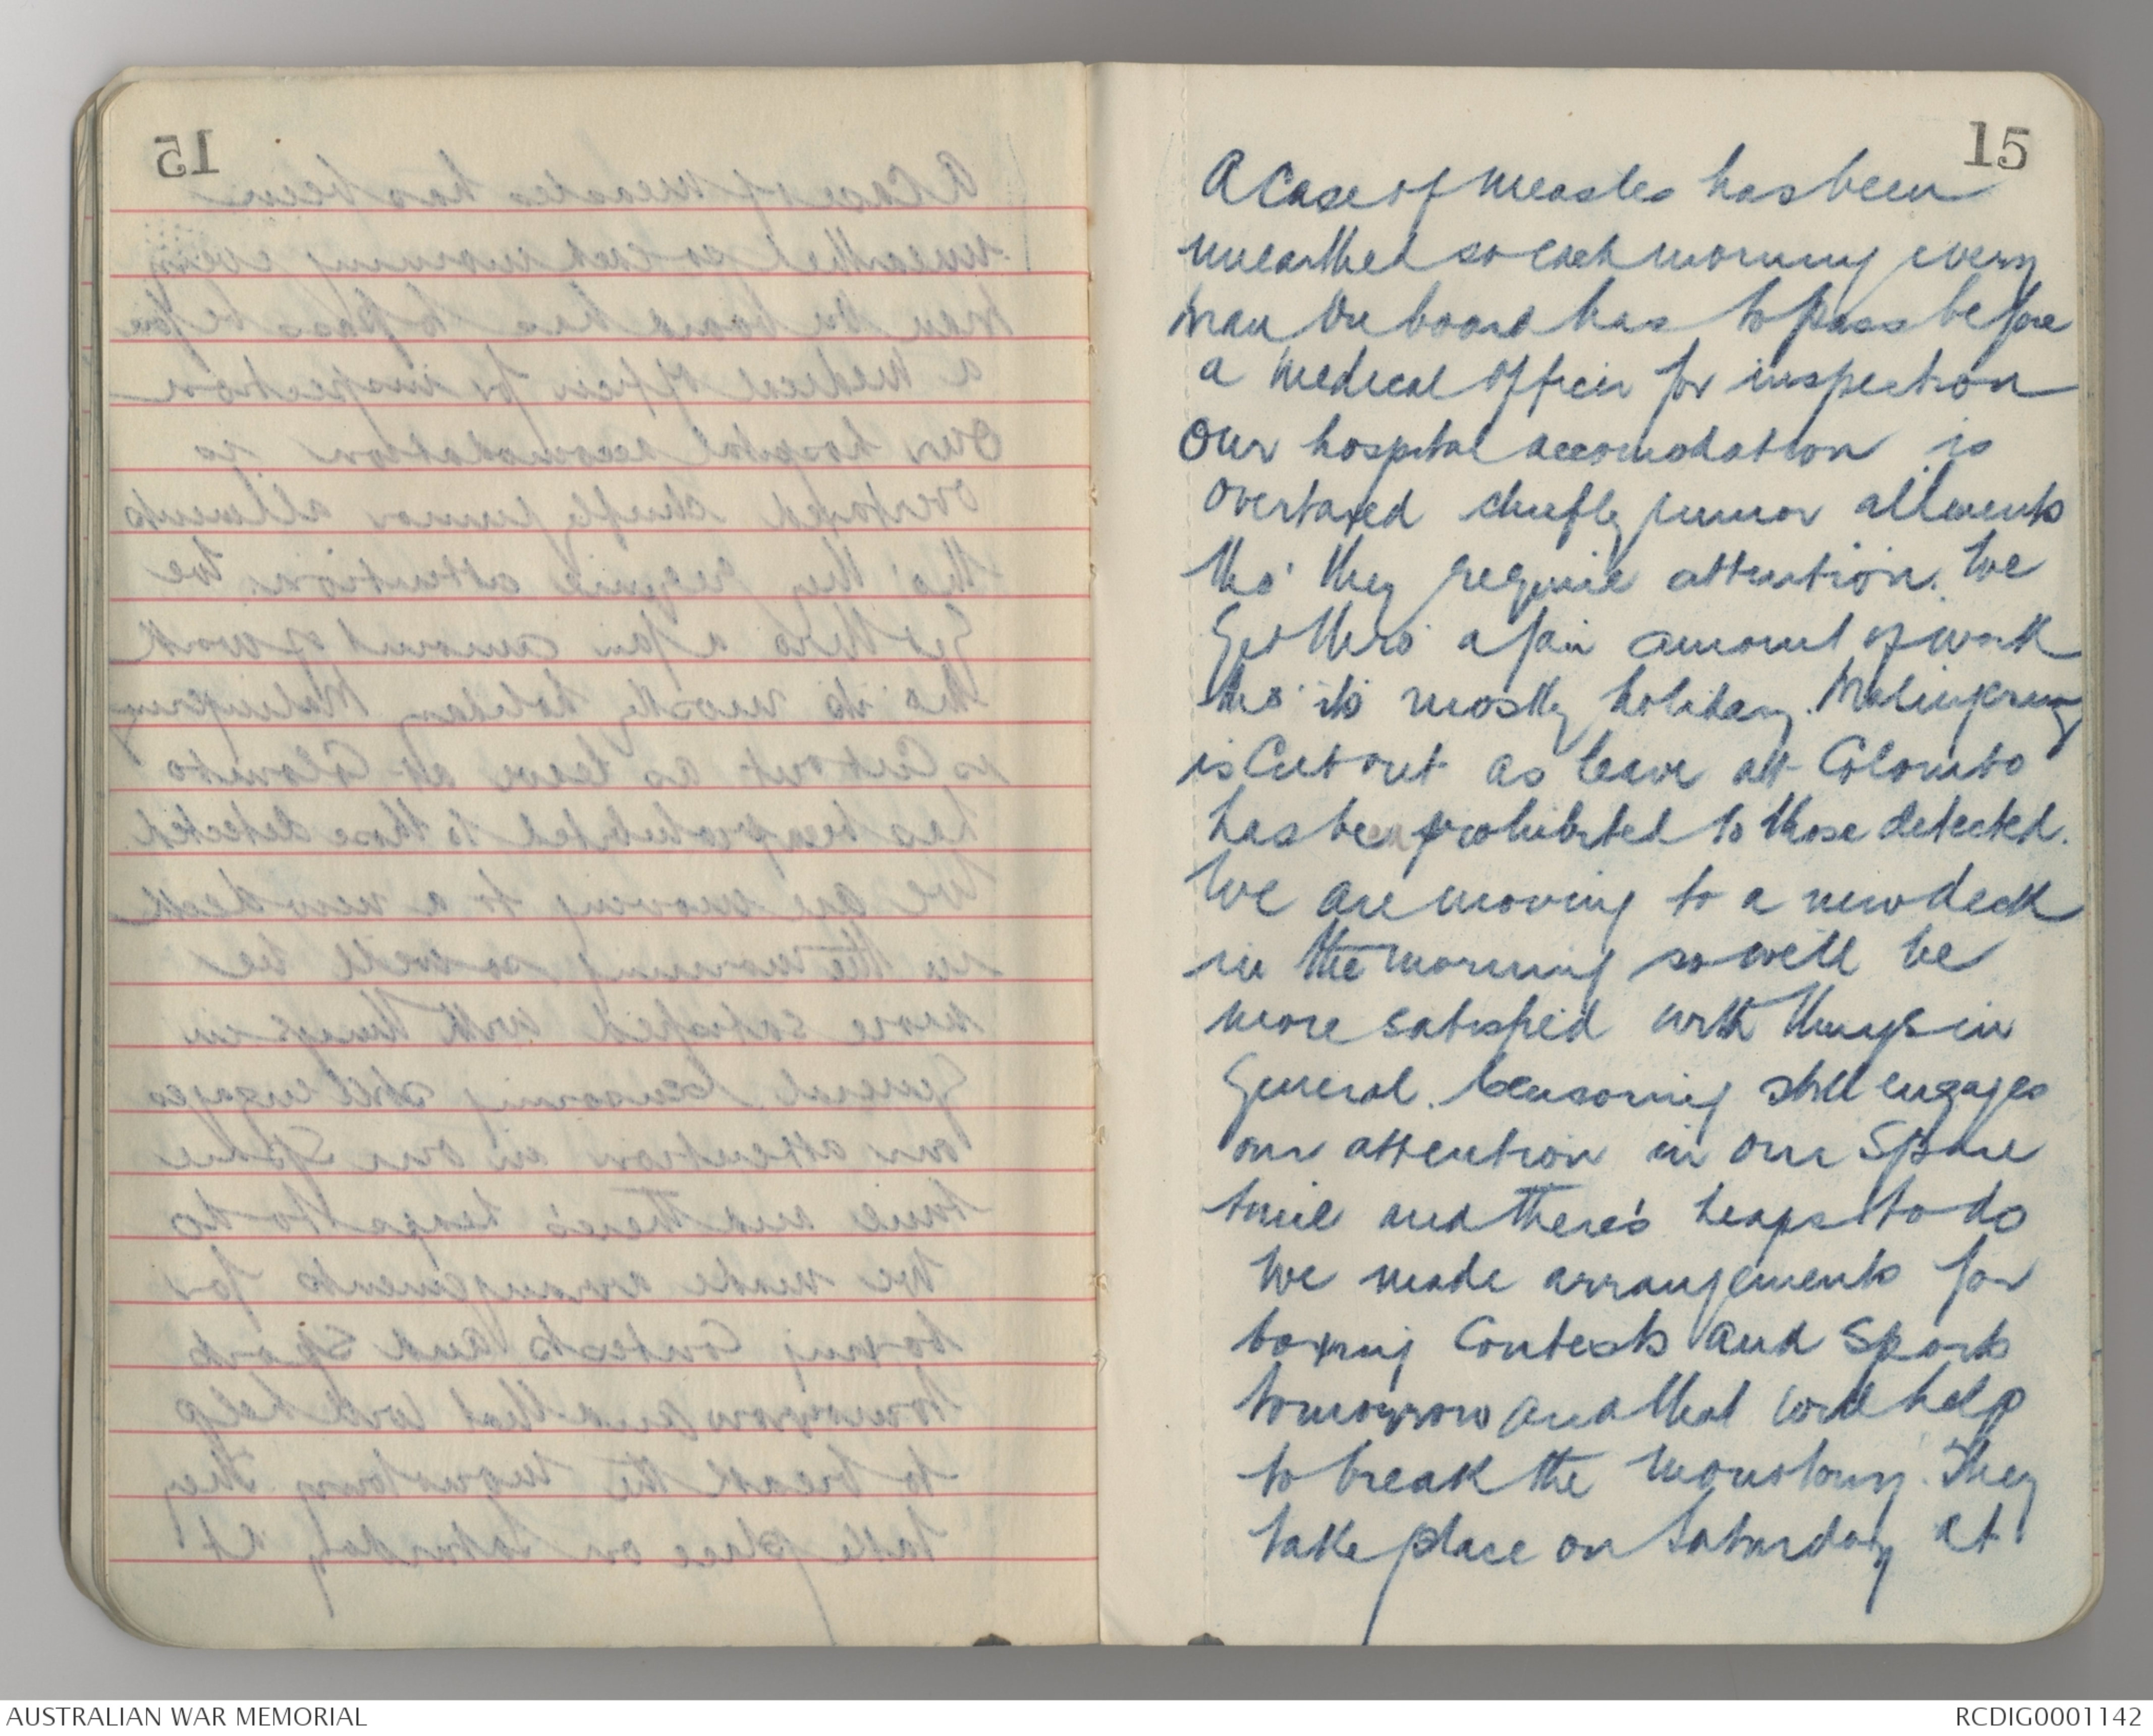 15
A Case of measles has been
unearthed so each morning every
man on board has to pass before
a medical officer for inspection
Our hospital accomodation is
overtaxed chiefly minor allments
tho' they require attention. We
Get thro' a fair amount of work
tho' its mostly holiday. Malingering
is Cut out as leave at Colombo
has been prohibited to those detected.
We are moving to a new deck
in the morning so will be
more satisfied with things in
General. Censoring still engages
our attention in our Spare
time and there's heaps to do
We made arrangements for
boxing Contests and Sports
tomorrow and that will help
to break the monotony. They
take place on Saturday at
AUSTRALIAN WAR MEMORIAL
RCDIG0001142